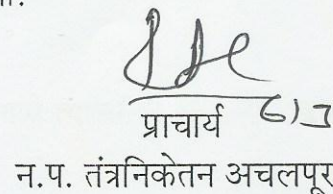 प्राचार्य
न.प. तंत्रनिकेतन अचलपूर